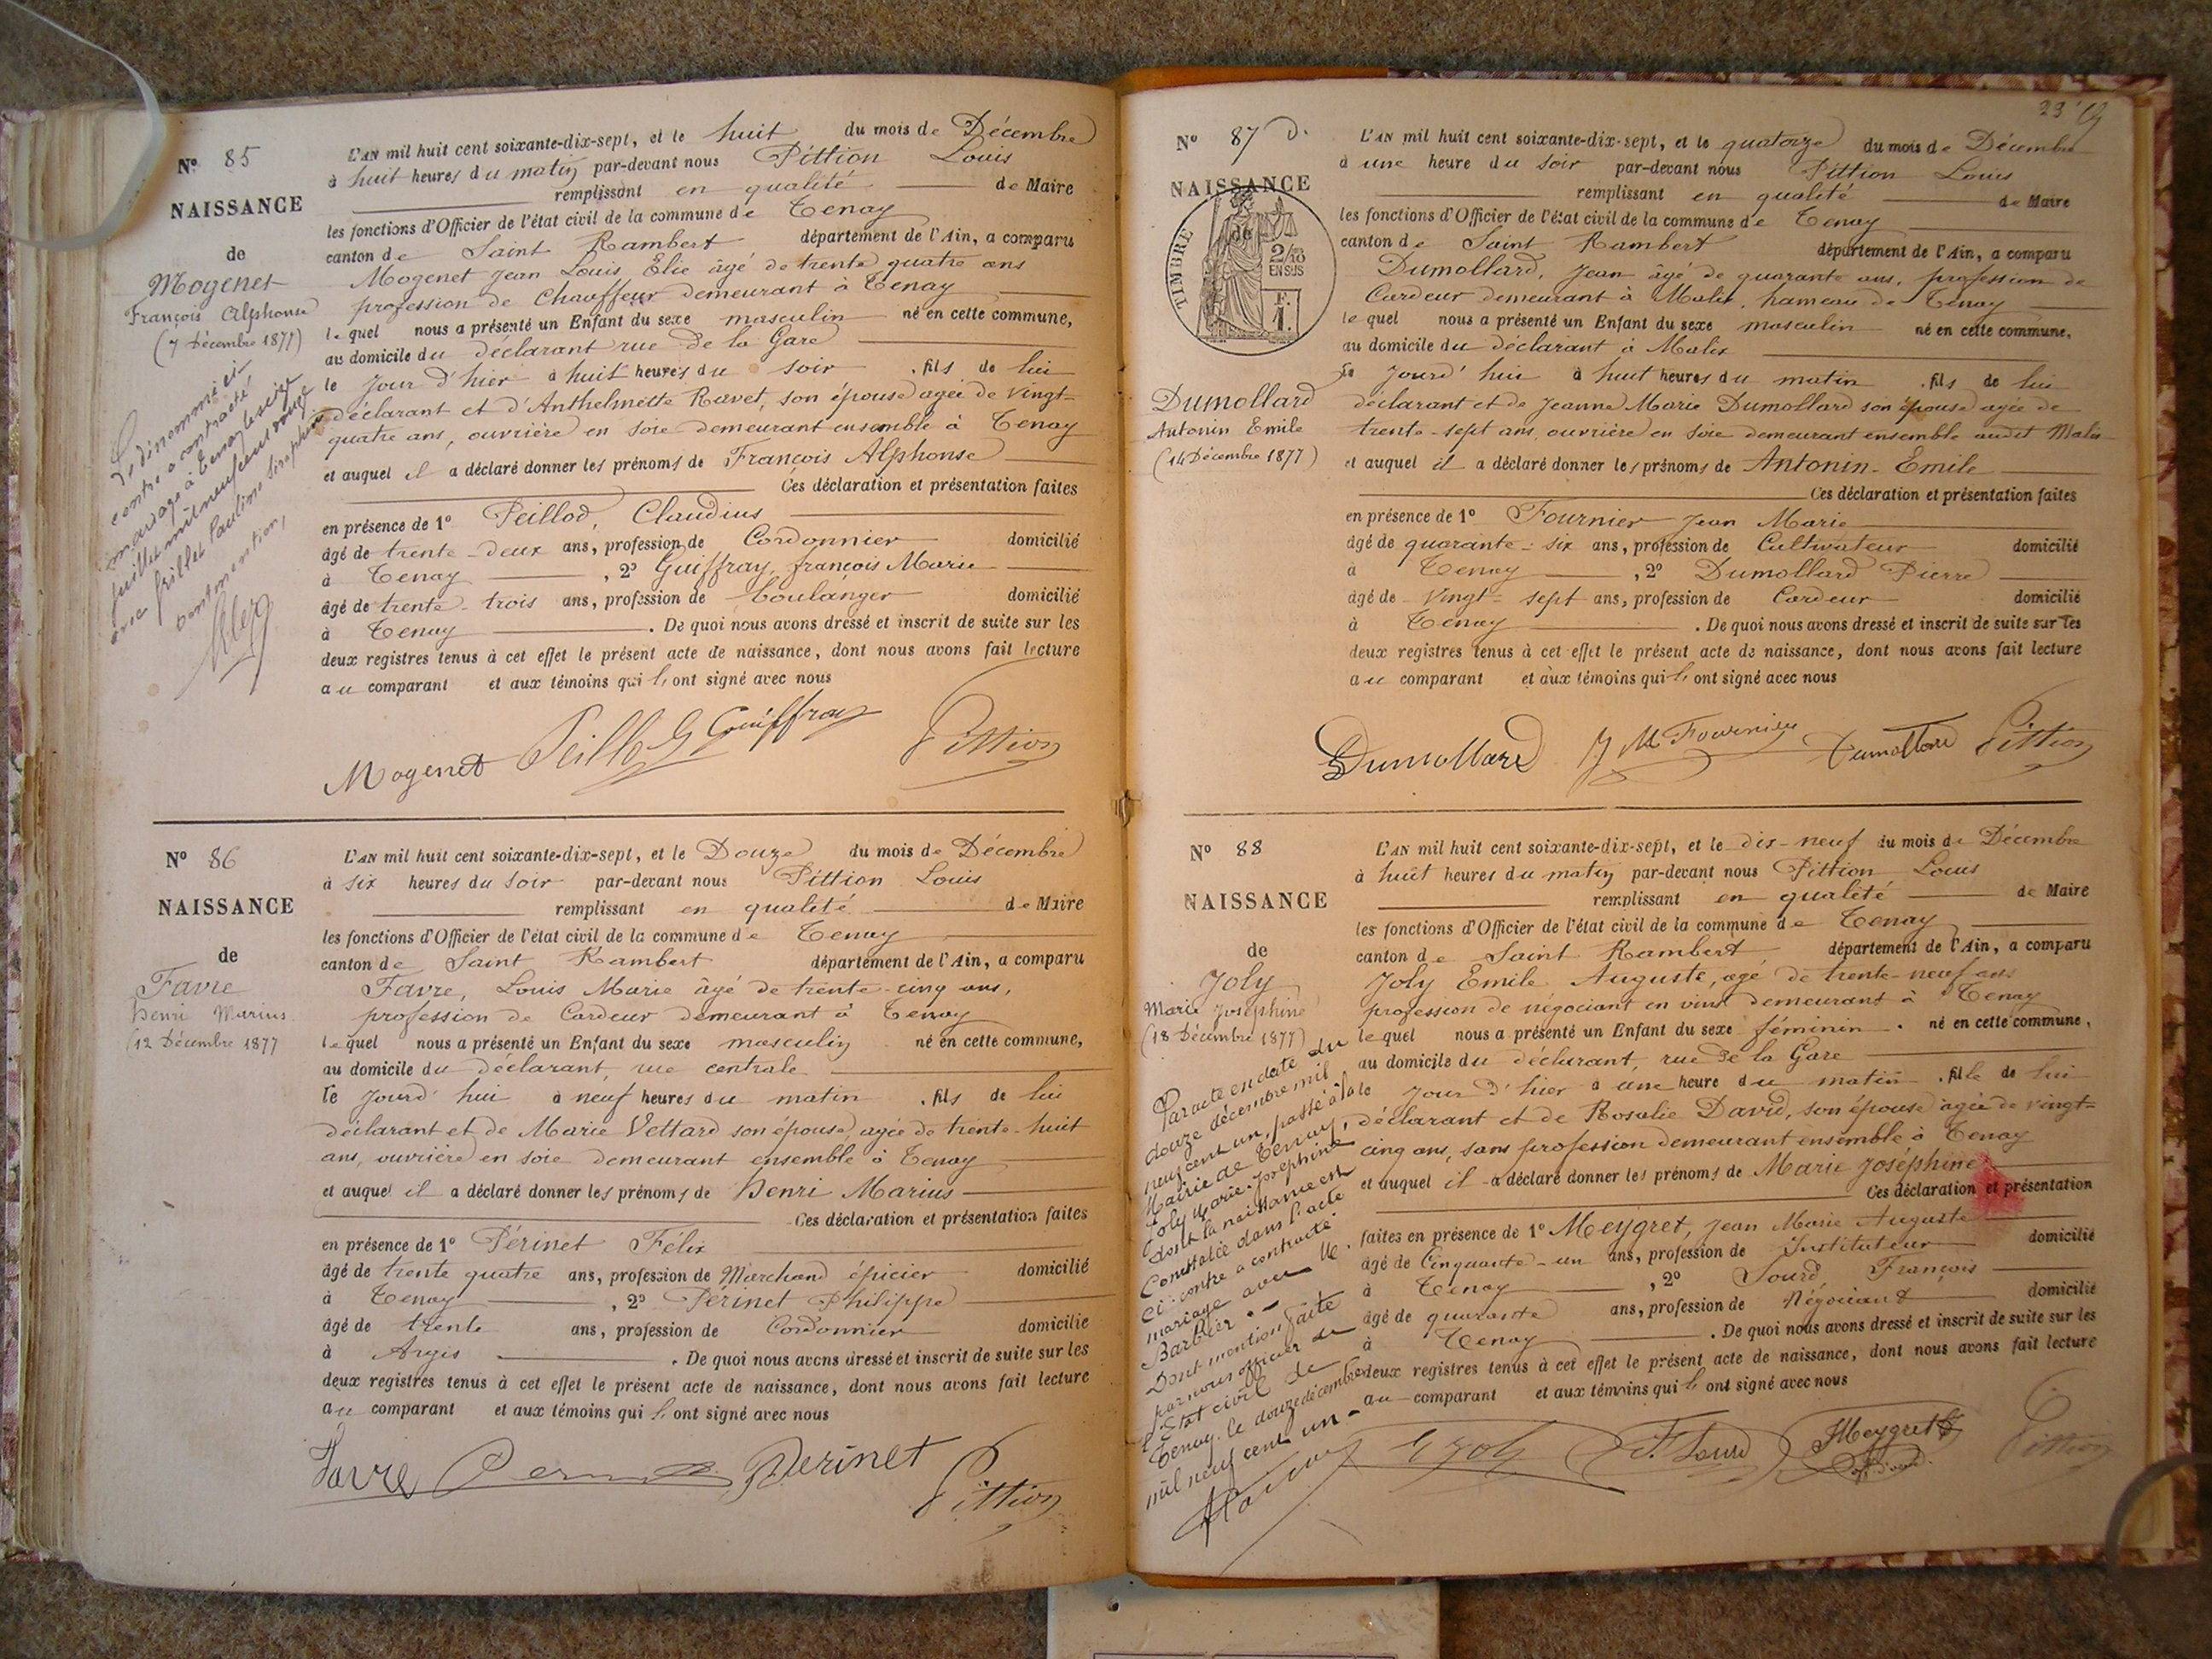 N° 85
NAISSANCE
de
Mogenet
François Alphonse
(7 Décembre 1877)
Le dénommé ci-
contre a contracté
mariage à Tenay le seize
juillet mil neuf cent
avec Grillet Pauline
Dont mention,
L'AN mil huit cent soixante-dix-sept, et le huit du mois de Décembre
à huit heures du matin par-devant nous Pittion Louis
remplissant en qualité de Maire
les fonctions d'Officier de l'état civil de la commune de Tenay
canton de Saint Rambert département de l'Ain, a comparu
Mogenet Jean Louis Élie âgé de trente quatre ans
profession de Chauffeur demeurant à Tenay
lequel nous a présenté un Enfant du sexe masculin né en cette commune,
au domicile du déclarant rue de la Gare
le jour d'hier à huit heures du soir . fils de lui
déclarant et d'Anthelmette Ravet, son épouse agée de vingt-
quatre ans, ouvrière en soie demeurant ensemble à Tenay
et auquel il a déclaré donner les prénoms de François Alphonse
Ces déclaration et présentation faites
en présence de 1° Peillod, Claudius
âgé de trente-deux ans, profession de Cordonnier domicilié
à Tenay , 2° Guiffray, françois Marie
âgé de trente-trois ans, profession de boulanger domicilié
à Tenay . De quoi nous avons dressé et inscrit de suite sur les
deux registres tenus à cet effet le présent acte de naissance, dont nous avons fait lecture
au comparant et aux témoins qui l, ont signé avec nous
Mogenet Peillod Guiffray Pittion
N° 86
NAISSANCE
de
Favre
henri Marius
(12 Décembre 1877
L'AN mil huit cent soixante-dix-sept, et le Douze du mois de Décembre
à six heures du soir par-devant nous Pittion Louis
remplissant en qualité de Maire
les fonctions d'Officier de l'état civil de la commune de Tenay
canton de Saint Rambert département de l'Ain, a comparu
Favre, Louis Marie âgé de trente-cinq ans,
profession de Cardeur demeurant à Tenay
lequel nous a présenté un Enfant du sexe masculin né en cette commune,
au domicile du déclarant, rue centrale
le jourd'hui à neuf heures du matin . fils de lui
déclarant et de Marie Vettard son épouse, agée de trente-huit
ans, ouvrière en soie demeurant ensemble à Tenay
et auquel il a déclaré donner les prénoms de henri Marius
Ces déclaration et présentation faites
en présence de 1° Périnet Félix
âgé de trente quatre ans, profession de Marchand épicier domicilié
à Tenay , 2° Perinet Philippe
âgé de trente ans, profession de Cordonnier domicilié
à Argis . De quoi nous avons dressé et inscrit de suite sur les
deux registres tenus à cet effet le présent acte de naissance, dont nous avons fait lecture
au comparant et aux témoins qui l, ont signé avec nous
Favre Perinet Pittion
23
N° 87
NAISSANCE
de
TIMBRE
2/10
EN SUS
F.
1.
Dumollard
Antonin Emile
(14 Décembre 1877)
L'AN mil huit cent soixante-dix-sept, et le quatorze du mois de Décembre
à une heure du soir par-devant nous Pittion Louis
remplissant en qualité de Maire
les fonctions d'Officier de l'état civil de la commune de Tenay
canton de Saint Rambert département de l'Ain, a comparu
Dumollard, Jean âgé de quarante ans, profession de
Cardeur demeurant à Malix, hameau de Tenay
lequel nous a présenté un Enfant du sexe masculin né en cette commune,
au domicile du déclarant à Malix
le jourd'hui à huit heures du matin . fils de lui
déclarant et de Jeanne Marie Dumollard son épouse agée de
trente-sept ans, ouvrière en soie demeurant ensemble audit Malix
et auquel il a déclaré donner les prénoms de Antonin-Emile
Ces déclaration et présentation faites
en présence de 1° Fournier Jean Marie
âgé de quarante-six ans, profession de Cultivateur domicilié
à Tenay , 2° Dumollard Pierre
âgé de vingt-sept ans, profession de Cardeur domicilié
à Tenay . De quoi nous avons dressé et inscrit de suite sur les
deux registres tenus à cet effet le présent acte de naissance, dont nous avons fait lecture
au comparant et aux témoins qui l, ont signé avec nous
Dumollard J M Fournier Dumollard Pittion
N° 88
NAISSANCE
de
Joly
Marie Joséphine
(18 Décembre 1877)
Par acte en date du
douze décembre mil
neuf cent un, passé à la
Mairie de Tenay,
Joly Marie-Joséphine
dont la naissance est
Constatée dans l'acte
ci-contre a contracté
mariage avec M.
Barbier.-
Dont mention faite
par nous officier de
l'Etat civil de
Tenay, le douze décembre
mil neuf cent un-
L'AN mil huit cent soixante-dix-sept, et le dix-neuf du mois de Décembre
à huit heures du matin par-devant nous Pittion Louis
remplissant en qualité de Maire
les fonctions d'Officier de l'état civil de la commune de Tenay
canton de Saint Rambert département de l'Ain, a comparu
Joly Emile Auguste, agé de trente-neuf ans
profession de négociant en vins demeurant à Tenay
lequel nous a présenté un Enfant du sexe féminin . né en cette commune,
au domicile du déclarant, rue de la Gare
le jour d'hier à une heure du matin . fille de lui
déclarant et de Rosalie David, son épouse agée de vingt-
cinq ans, sans profession demeurant ensemble à Tenay
et auquel il a déclaré donner les prénoms de Marie Joséphine
Ces déclaration et présentation
faites en présence de 1° Meygret, Jean Marie Auguste
âgé de Cinquante-un ans, profession de Instituteur domicilié
à Tenay , 2° Sourd, François
âgé de quarante ans, profession de Négociant domicilié
à Tenay . De quoi nous avons dressé et inscrit de suite sur les
deux registres tenus à cet effet le présent acte de naissance, dont nous avons fait lecture
au comparant et aux témoins qui l, ont signé avec nous
E Joly F. Sourd Meygret Pittion